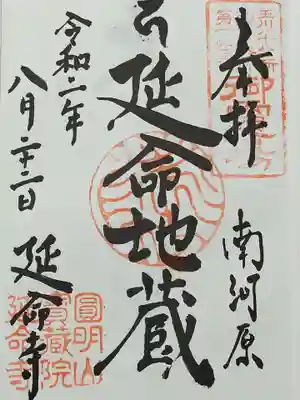 奉拝
南河原
延命地蔵
令和二年
八月二十二日
延命寺
圓明山
寳蔵院
延命寺